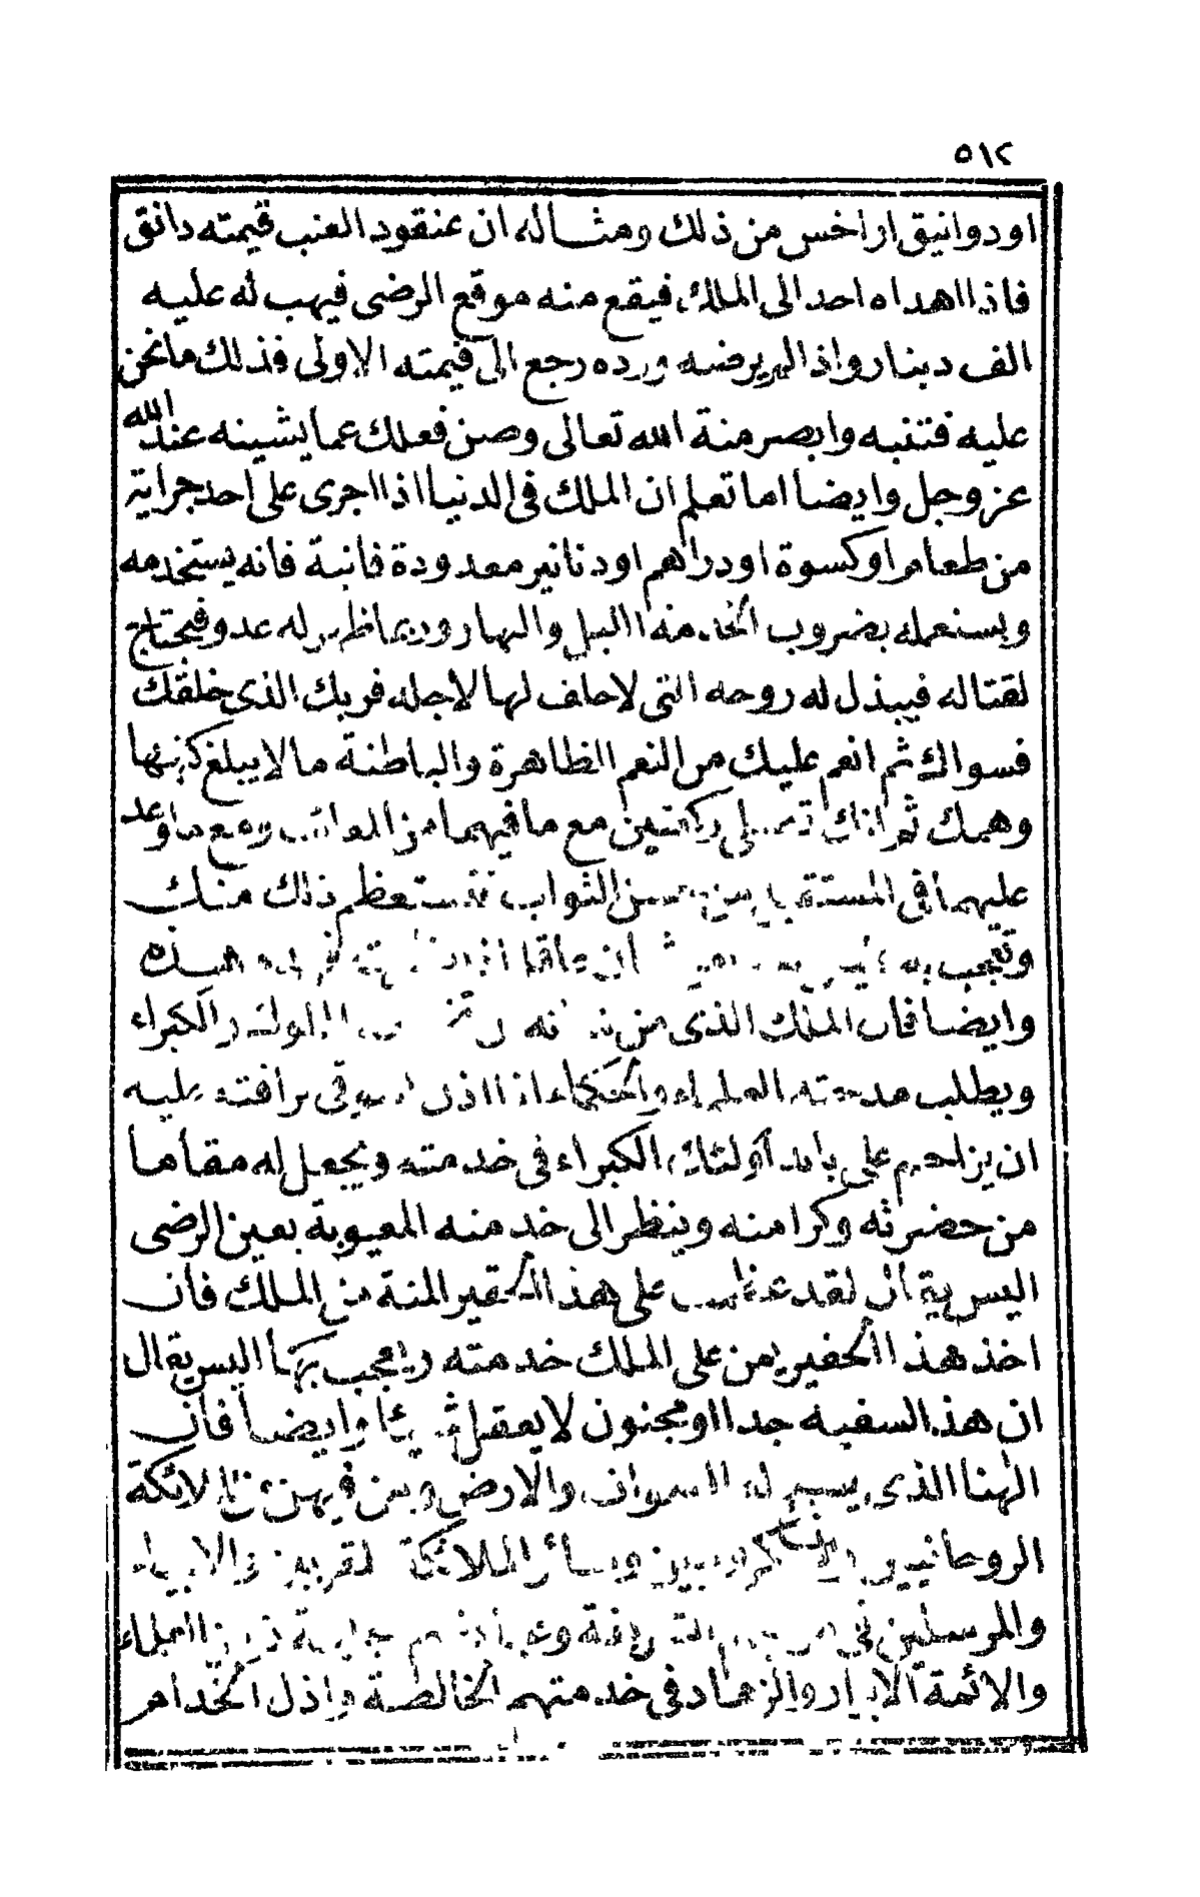 ٥١٢
اودوانيق اواخس من ذلك ومثاله ان عنقود العنب قيمته دانق
فاذا اهداه احد الى الملك فيقع منه موقع الرضى فيهب له عليه
الف دينار واذا لم يرضه ورده رجع الى قيمته الاولى فذلك ما نحن
عليه فتنبه وابصر منة الله تعالى وصن فعلك عما يشينه عند الله
عز وجل وايضا اما تعلم ان الملك فى الدنيا اذا اجرى على احد جراية
من طعام او كسوة او دراهم او دنانير معدودة فانية فانه يستخدمه
ويستعمله بضروب الخدمة الليل والنهار وربما ظهر له عدو فيحتاج
لقتاله فيبذل له روحه التى لا خلف لها لاجله فربك الذى خلقك
فسواك ثم انعم عليك من النعم الظاهرة والباطنة مالا يبلغ كنهها
وهمك ثم انك تصلى ركعتين مع ما فيهما من ومع ما وعد
عليهما فى المستقبل من حسن الثواب تستعظم ذلك منك
وتعجب به ان عاقلا هذه
وايضا فان الملك الذى من الملوك والكبراء
ويطلب مدحته العلماء والحكماء اذا اذن لسوقى برافته عليه
ان يزاحم على بابه اولئك الكبراء فى خدمته ويجعل له مقاما
من حضرته وكرامته وينظر الى خدمته المعيوبة بعين الرضى
اليس يقال لقد عظمت على هذا الحقير المنة من الملك فان
اخذ هذا الحقير يمن على الملك خدمته ويعجب بها اليس يقال
ان هذا السفيه جدا او مجنون لا يعقل شيئا وايضا فان
الهنا الذى يسبح له السموات والارض ومن فيهن من الملائكة
الروحانيين والكروبيين وسائر الملائكة المقربين والانبياء
والمرسلين العلماء
والائمة الابرار والزهاد فى خدمتهم الخالصة واذل الخدام